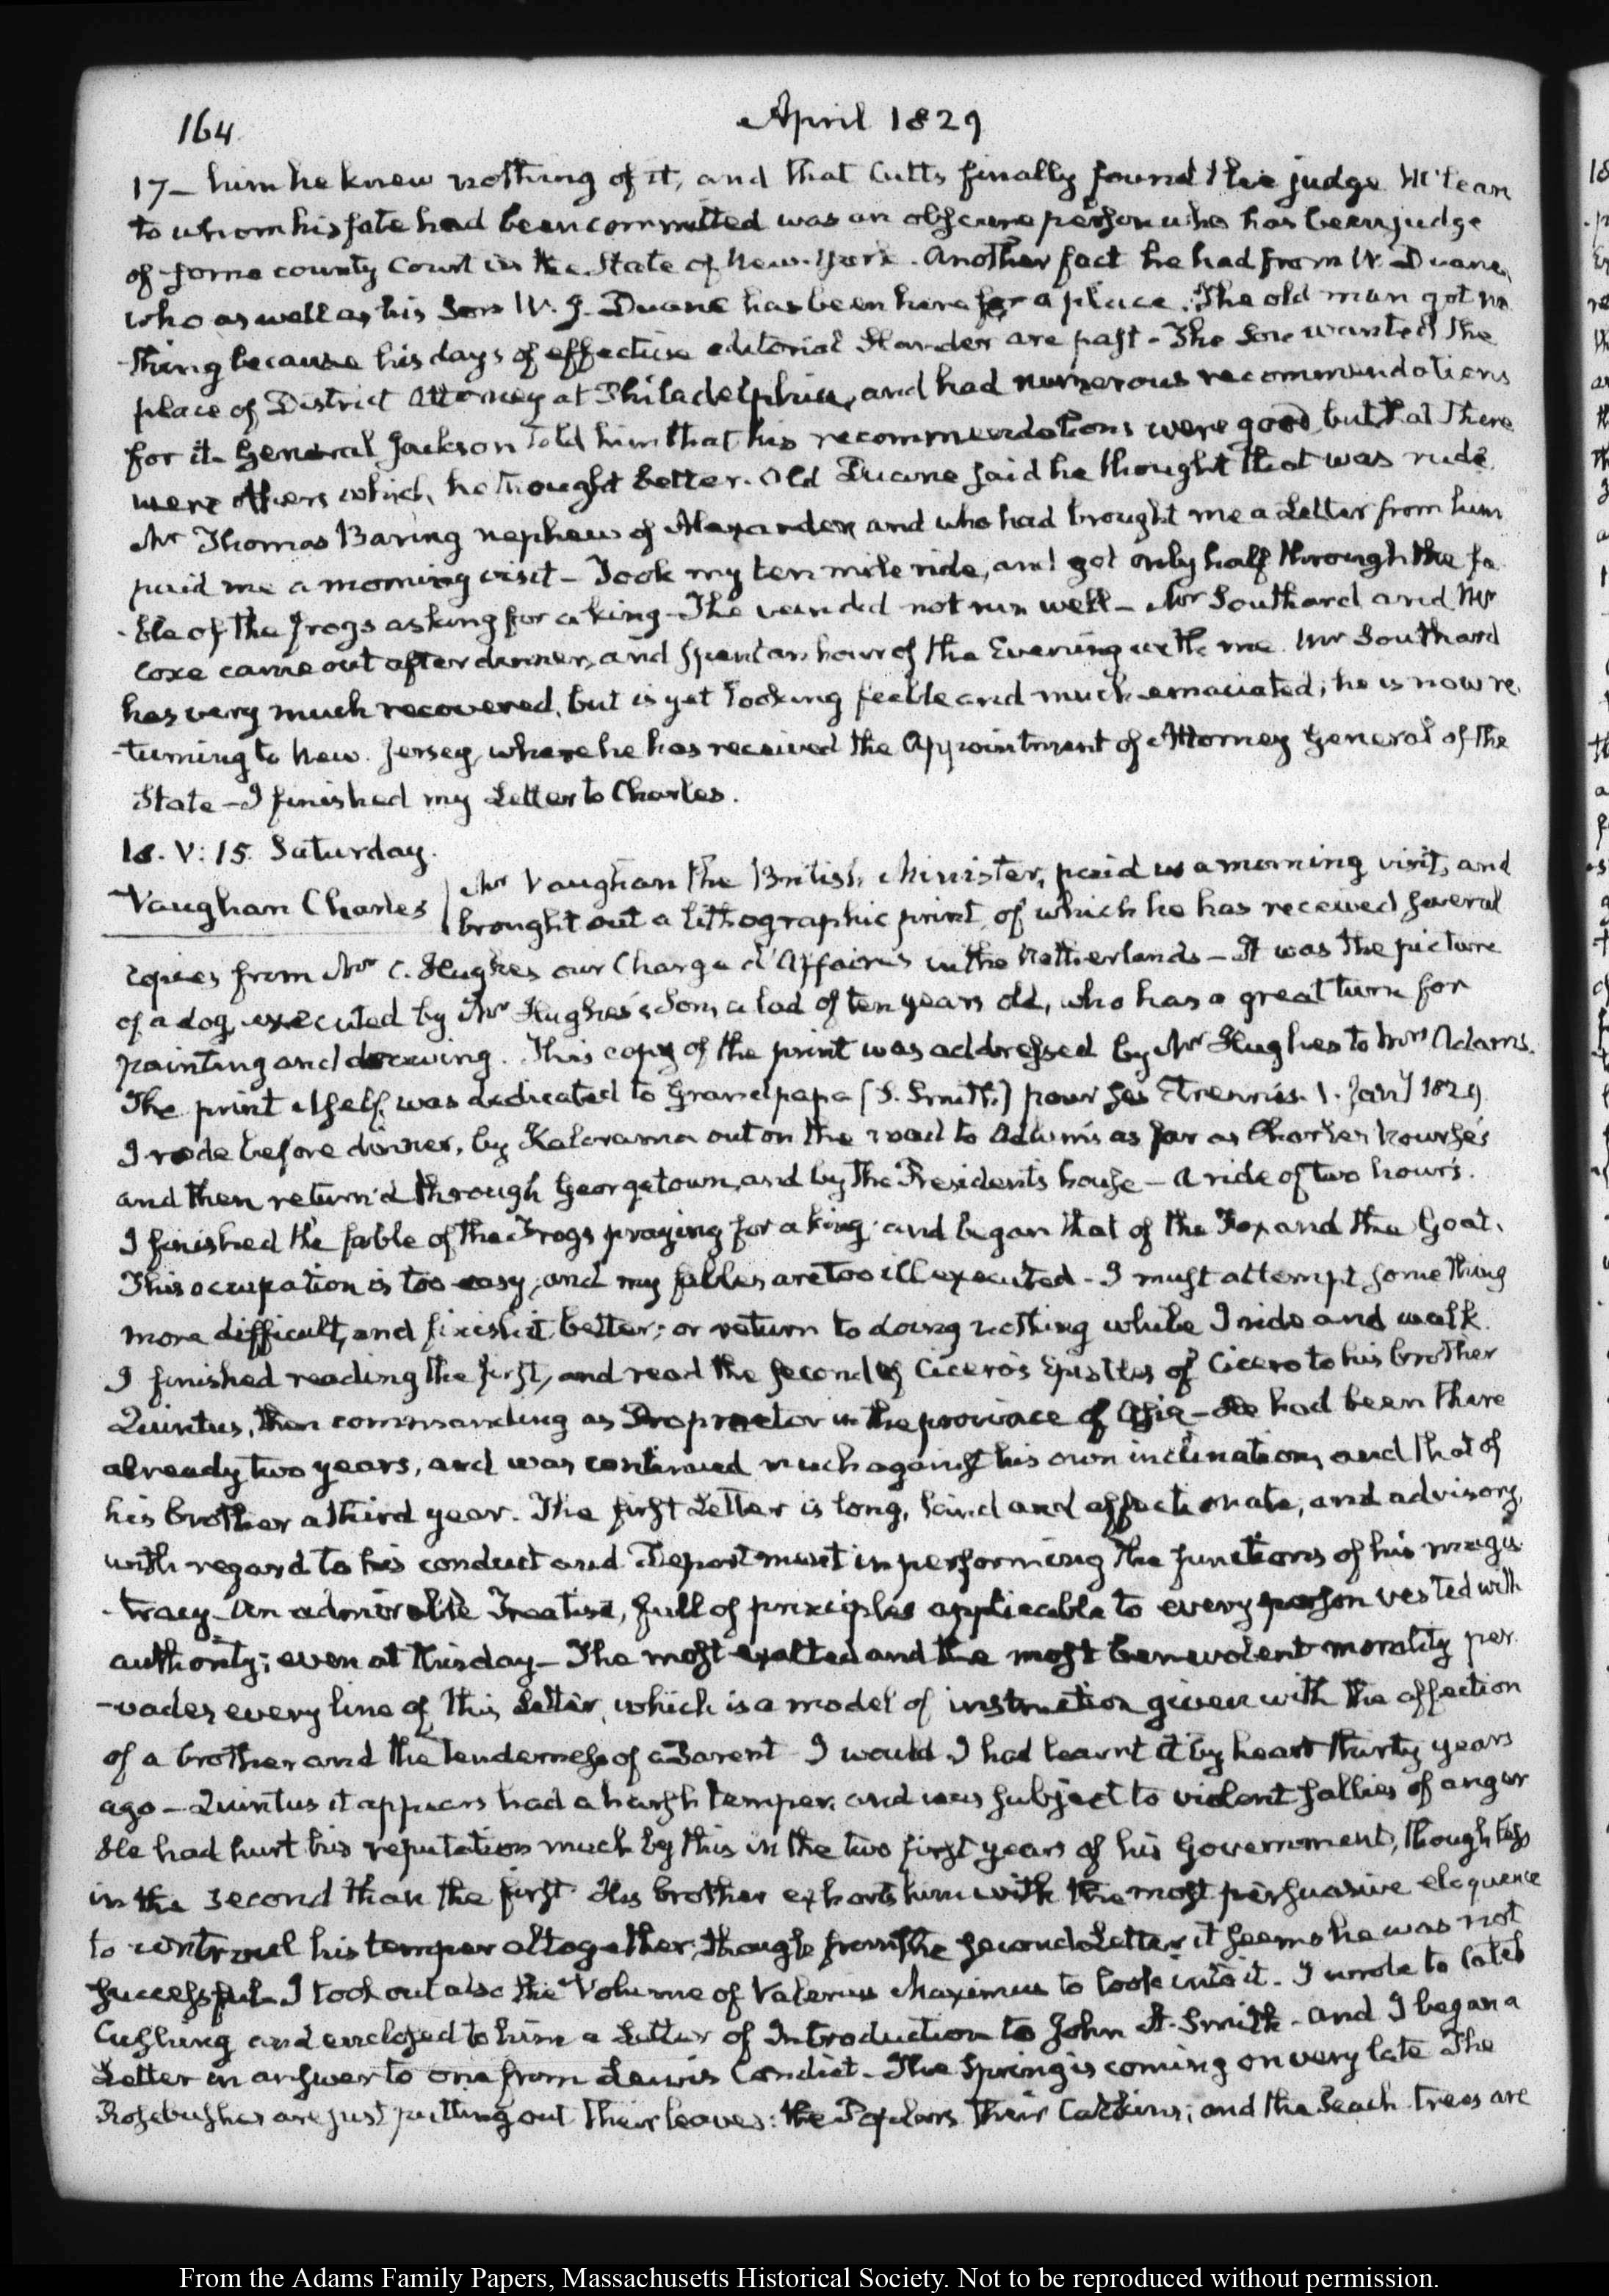 164
April 1829
17— him he knew nothing of it, and that Cutts finally found this judge McLean
to whom his fate had been committed was an obscure person who has been judge
of some county Court in the State of New-York. Another fact he had from W. Duane,
who as well as his Son W. J. Duane has been here for a place. The old man got no
-thing because his days of effective editorial Slander are past - The Son wanted the
place of District Attorney at Philadelphia, and had numerous recommendations
for it - General Jackson told him that his recommendations were good, but that there
were others which he thought better. Old Duane said he thought that was rude.
Mr Thomas Baring nephew of Alexander and who had brought me a Letter from him
paid me a morning visit - Took my ten mile ride, and got only half through the fa
-ble of the frogs asking for a king - The vein did not run well - Mr Southard and Mr
Coxe came out after dinner, and spent an hour of the Evening with me. Mr Southard
has very much recovered, but is yet looking feeble and much emaciated; he is now re
-turning to New-Jersey, where he has received the Appointment of Attorney General of the
State - I finished my Letter to Charles.
18. V: 15. Saturday.
Vaughan Charles
Mr Vaughan the British Minister, paid us a morning visit, and
brought out a lithographic print, of which he has received several
copies from Mr C. Hughes our Chargé d'Affaires in the Netherlands - It was the picture
of a dog, executed by Mr Hughes's Son, a lad of ten years old, who has a great turn for
painting and drawing. This copy of the print was addressed by Mr Hughes to Mrs Adams.
The print itself was dedicated to Grandpapa (S. Smith.) pour ses Etrennes. 1. Jany 1829.
I rode before dinner, by Kalorama out on the road to Adams's as far as Charles Nourse's
and then return'd through Georgetown, and by the President's house - a ride of two hours.
I finished the fable of the Frogs praying for a king; and began that of the Fox and the Goat.
This occupation is too easy, and my fables are too ill executed - I must attempt something
more difficult, and finish it better; or return to doing nothing while I ride and walk.
I finished reading the first, and read the second of Cicero's Epistles of Cicero to his brother
Quintus, then commanding as Propraetor in the province of Asia - He had been there
already two years, and was continued much against his own inclination, and that of
his brother a third year. The first Letter is long, kind and affectionate, and advisory,
with regard to his conduct and Deportment in performing the functions of his magis
-tracy - An admirable Treatise, full of principles applicable to every person vested with
authority; even at this day - The most exalted and the most benevolent morality per
-vades every line of this Letter, which is a model of instruction given with the affection
of a brother and the tenderness of a Parent - I would I had learnt it by heart thirty years
ago - Quintus it appears had a harsh temper, and was subject to violent sallies of anger
He had hurt his reputation much by this in the two first years of his Government, though less
in the second than the first. His brother exhorts him with the most persuasive eloquence
to controul his temper altogether, though from the second Letter it seems he was not
successful - I took out also the Volume of Valerius Maximus to look into it. I wrote to Caleb
Cushing and enclosed to him a Letter of Introduction to John A. Smith - and I began a
Letter in answer to one from Lewis Condict - The Spring is coming on very late The
Rosebushes are just putting out their leaves: the Poplars their Catkins; and the Peach trees are
From the Adams Family Papers, Massachusetts Historical Society. Not to be reproduced without permission.